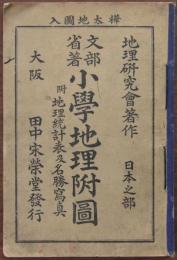 樺太地圖入
地理研究會著作　日本之部
文部省著
小學地理附圖
附地理統計表及名勝寫真
大阪　田中宋榮堂發行